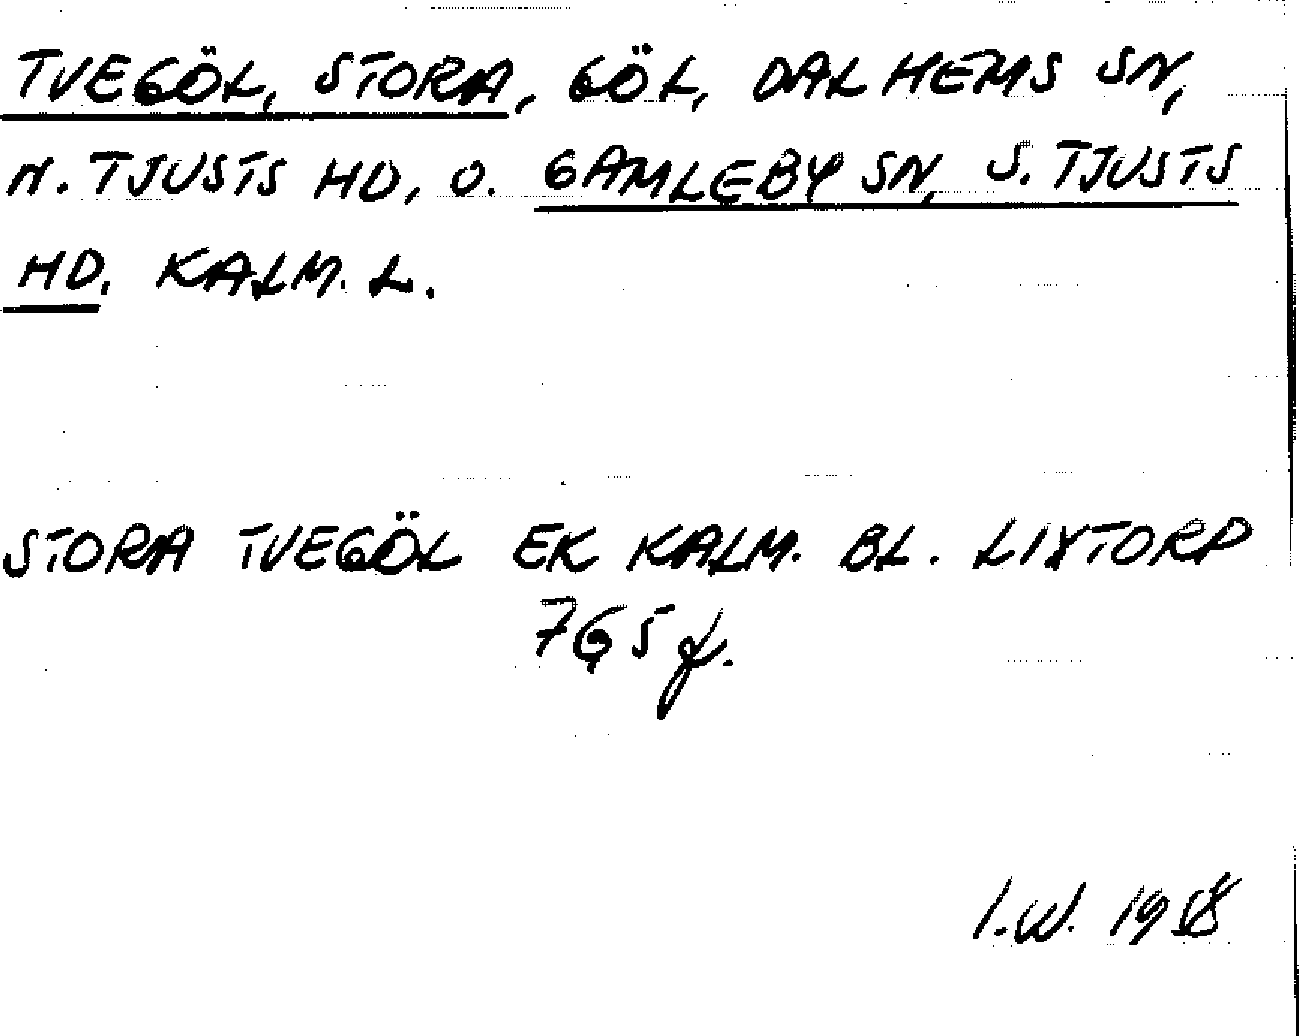 TVEGÖL, STORA, GÖL, DALHEMS SN,
N. TJUSTS HD, O. GAMLEBY SN, S. TJUSTS
HD. KALM. L.
STORA TVEGÖL EK KALM. BL. LIXTORP
765 f.
I.W. 1958